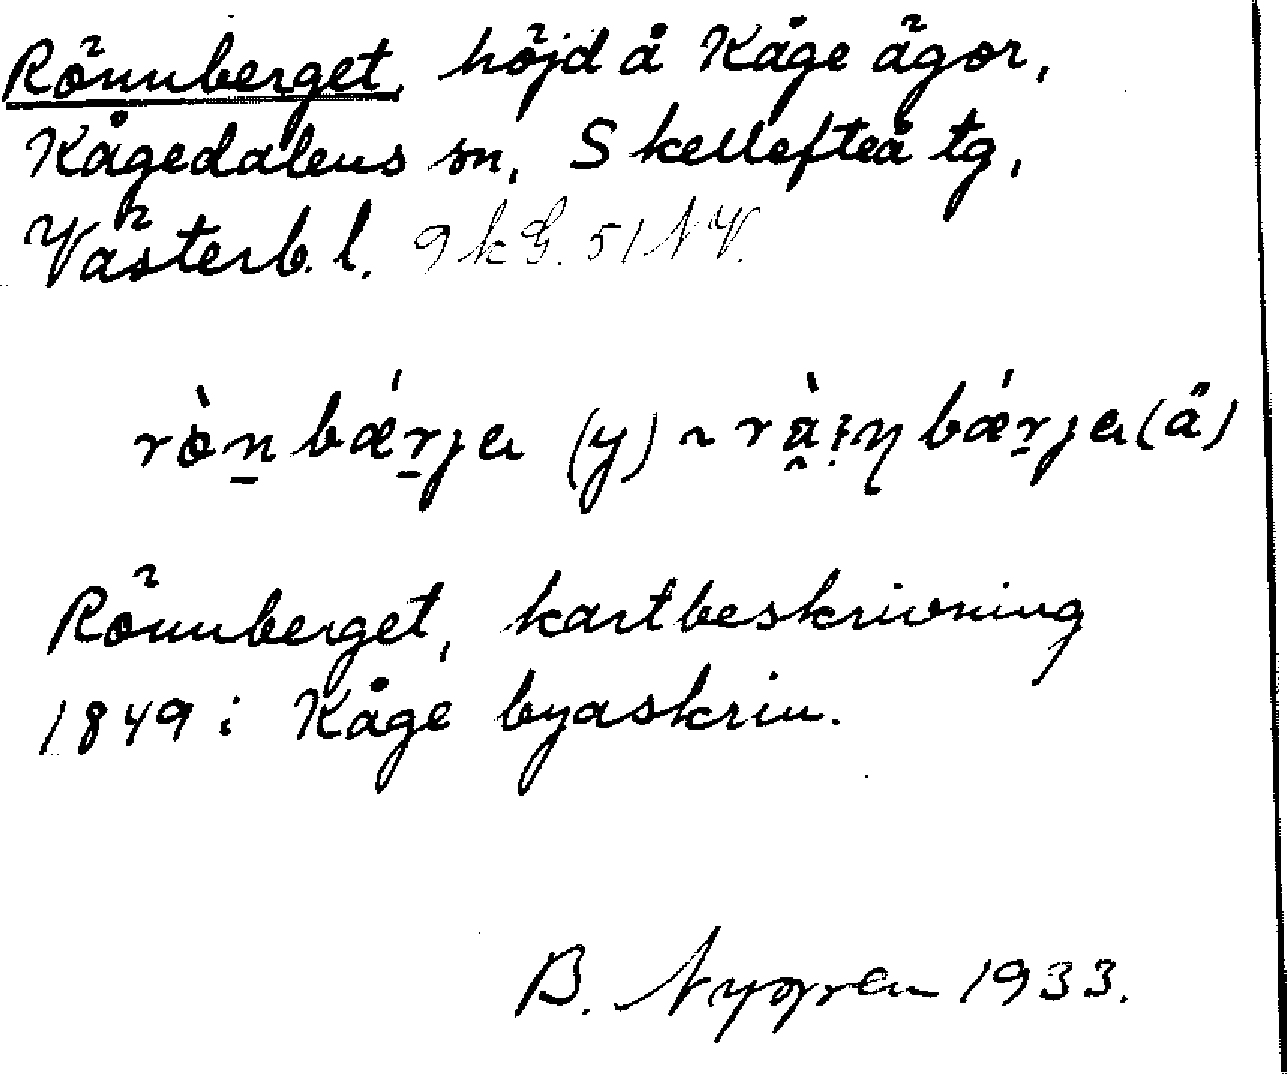 Rönnberget, höjd å Kåge ägor,
Kågedalens sn, Skellefteå tg,
Västerb. l. 9 k G. 51 N V.
(y) ~ (ä)
Rönnberget, kartbeskrivning
1849 i Kåge byaskrin.
B. Nygren 1933.